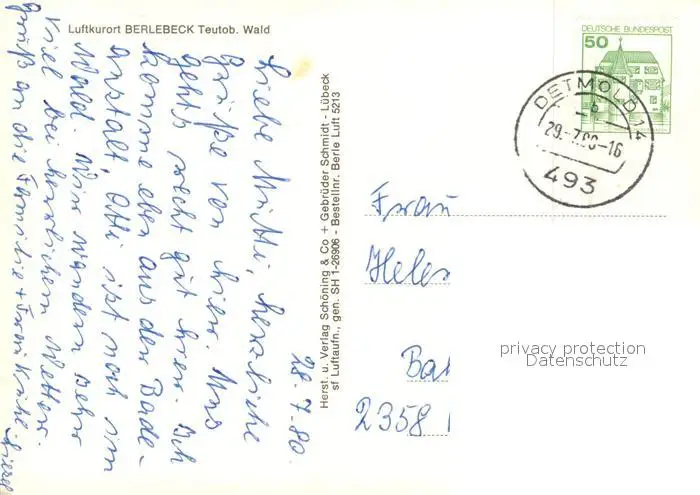 Luftkurort BERLEBECK Teutob. Wald
28.7.80.
Liebe Mutti, herzliche
Grüße von hier. Uns
geht's recht gut hier. Ich
komme eben aus der Bade-
anstalt, Otti ist noch im
Wald. Wir wandern sehr
viel bei herrlichem Wetter.
Gruß an die Familie + Frau
Herst. u. Verlag Schöning & Co + Gebrüder Schmidt - Lübeck
sf Luftaufn., gen. SH 1-26906 - Bestellnr. Berle Luft 5213
DEUTSCHE BUNDESPOST
50
DETMOLD 14
b
29.-7.80-16
493
Frau
Helen
Bad
2358
privacy protection
Datenschutz